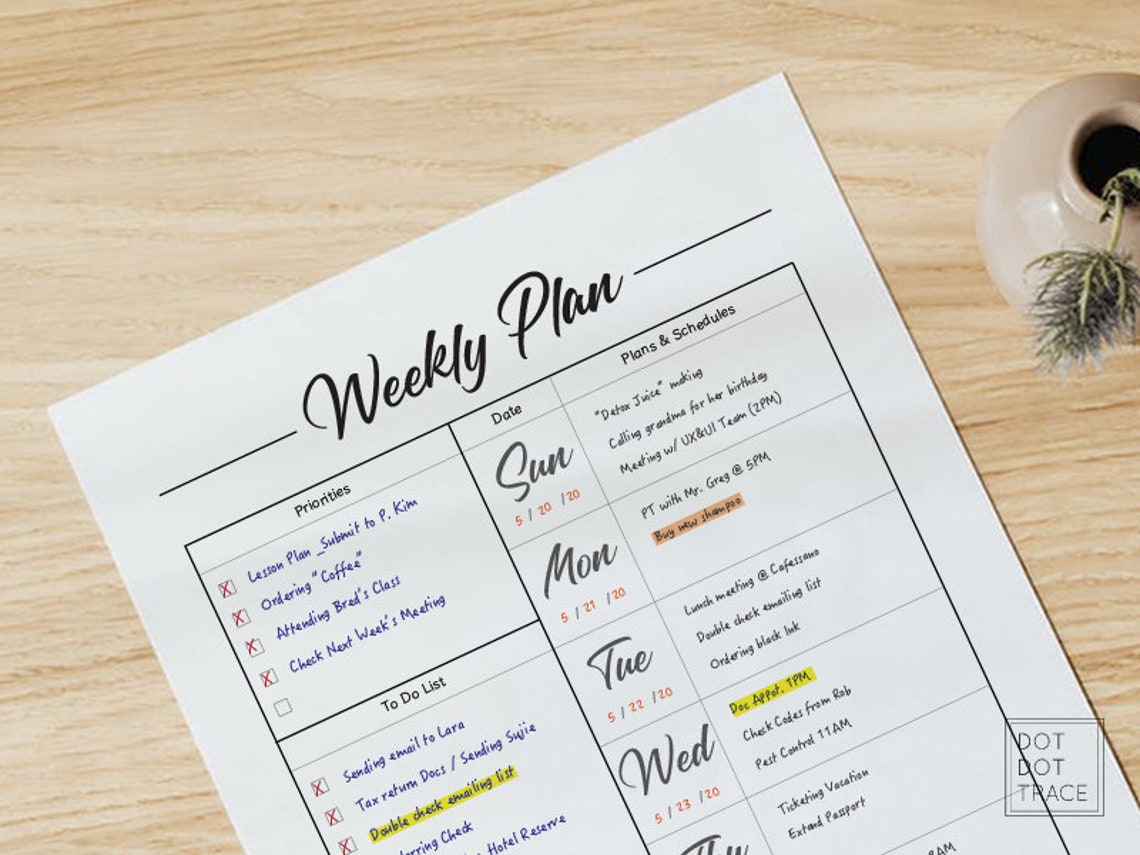 Weekly Plan
Priorities
X Lesson Plan _Submit to P. Kim
X Ordering "Coffee"
X Attending Bred's Class
X Check Next Week's Meeting
To Do List
X Sending email to Lara
X Tax return Docs / Sending Sujie
X Double check emailing list
Check
Hotel Reserve
Date
Plans & Schedules
Sun
5 / 20 /20
"Detox Juice" making
Calling grandma for her birthday
Meeting w/ UX&UI Team (2PM)
Mon
5 / 21 /20
PT with Mr. Greg @ 5PM
Buy new shampoo
Tue
5 / 22 /20
Lunch meeting @ Cafessano
Double check emailing list
Ordering black Ink
Wed
5 / 23 /20
Doc Appot. 1PM
Check Codes from Rob
Pest Control 11AM
Ticketing Vacation
Extand Passport
DOT
DOT
TRACE